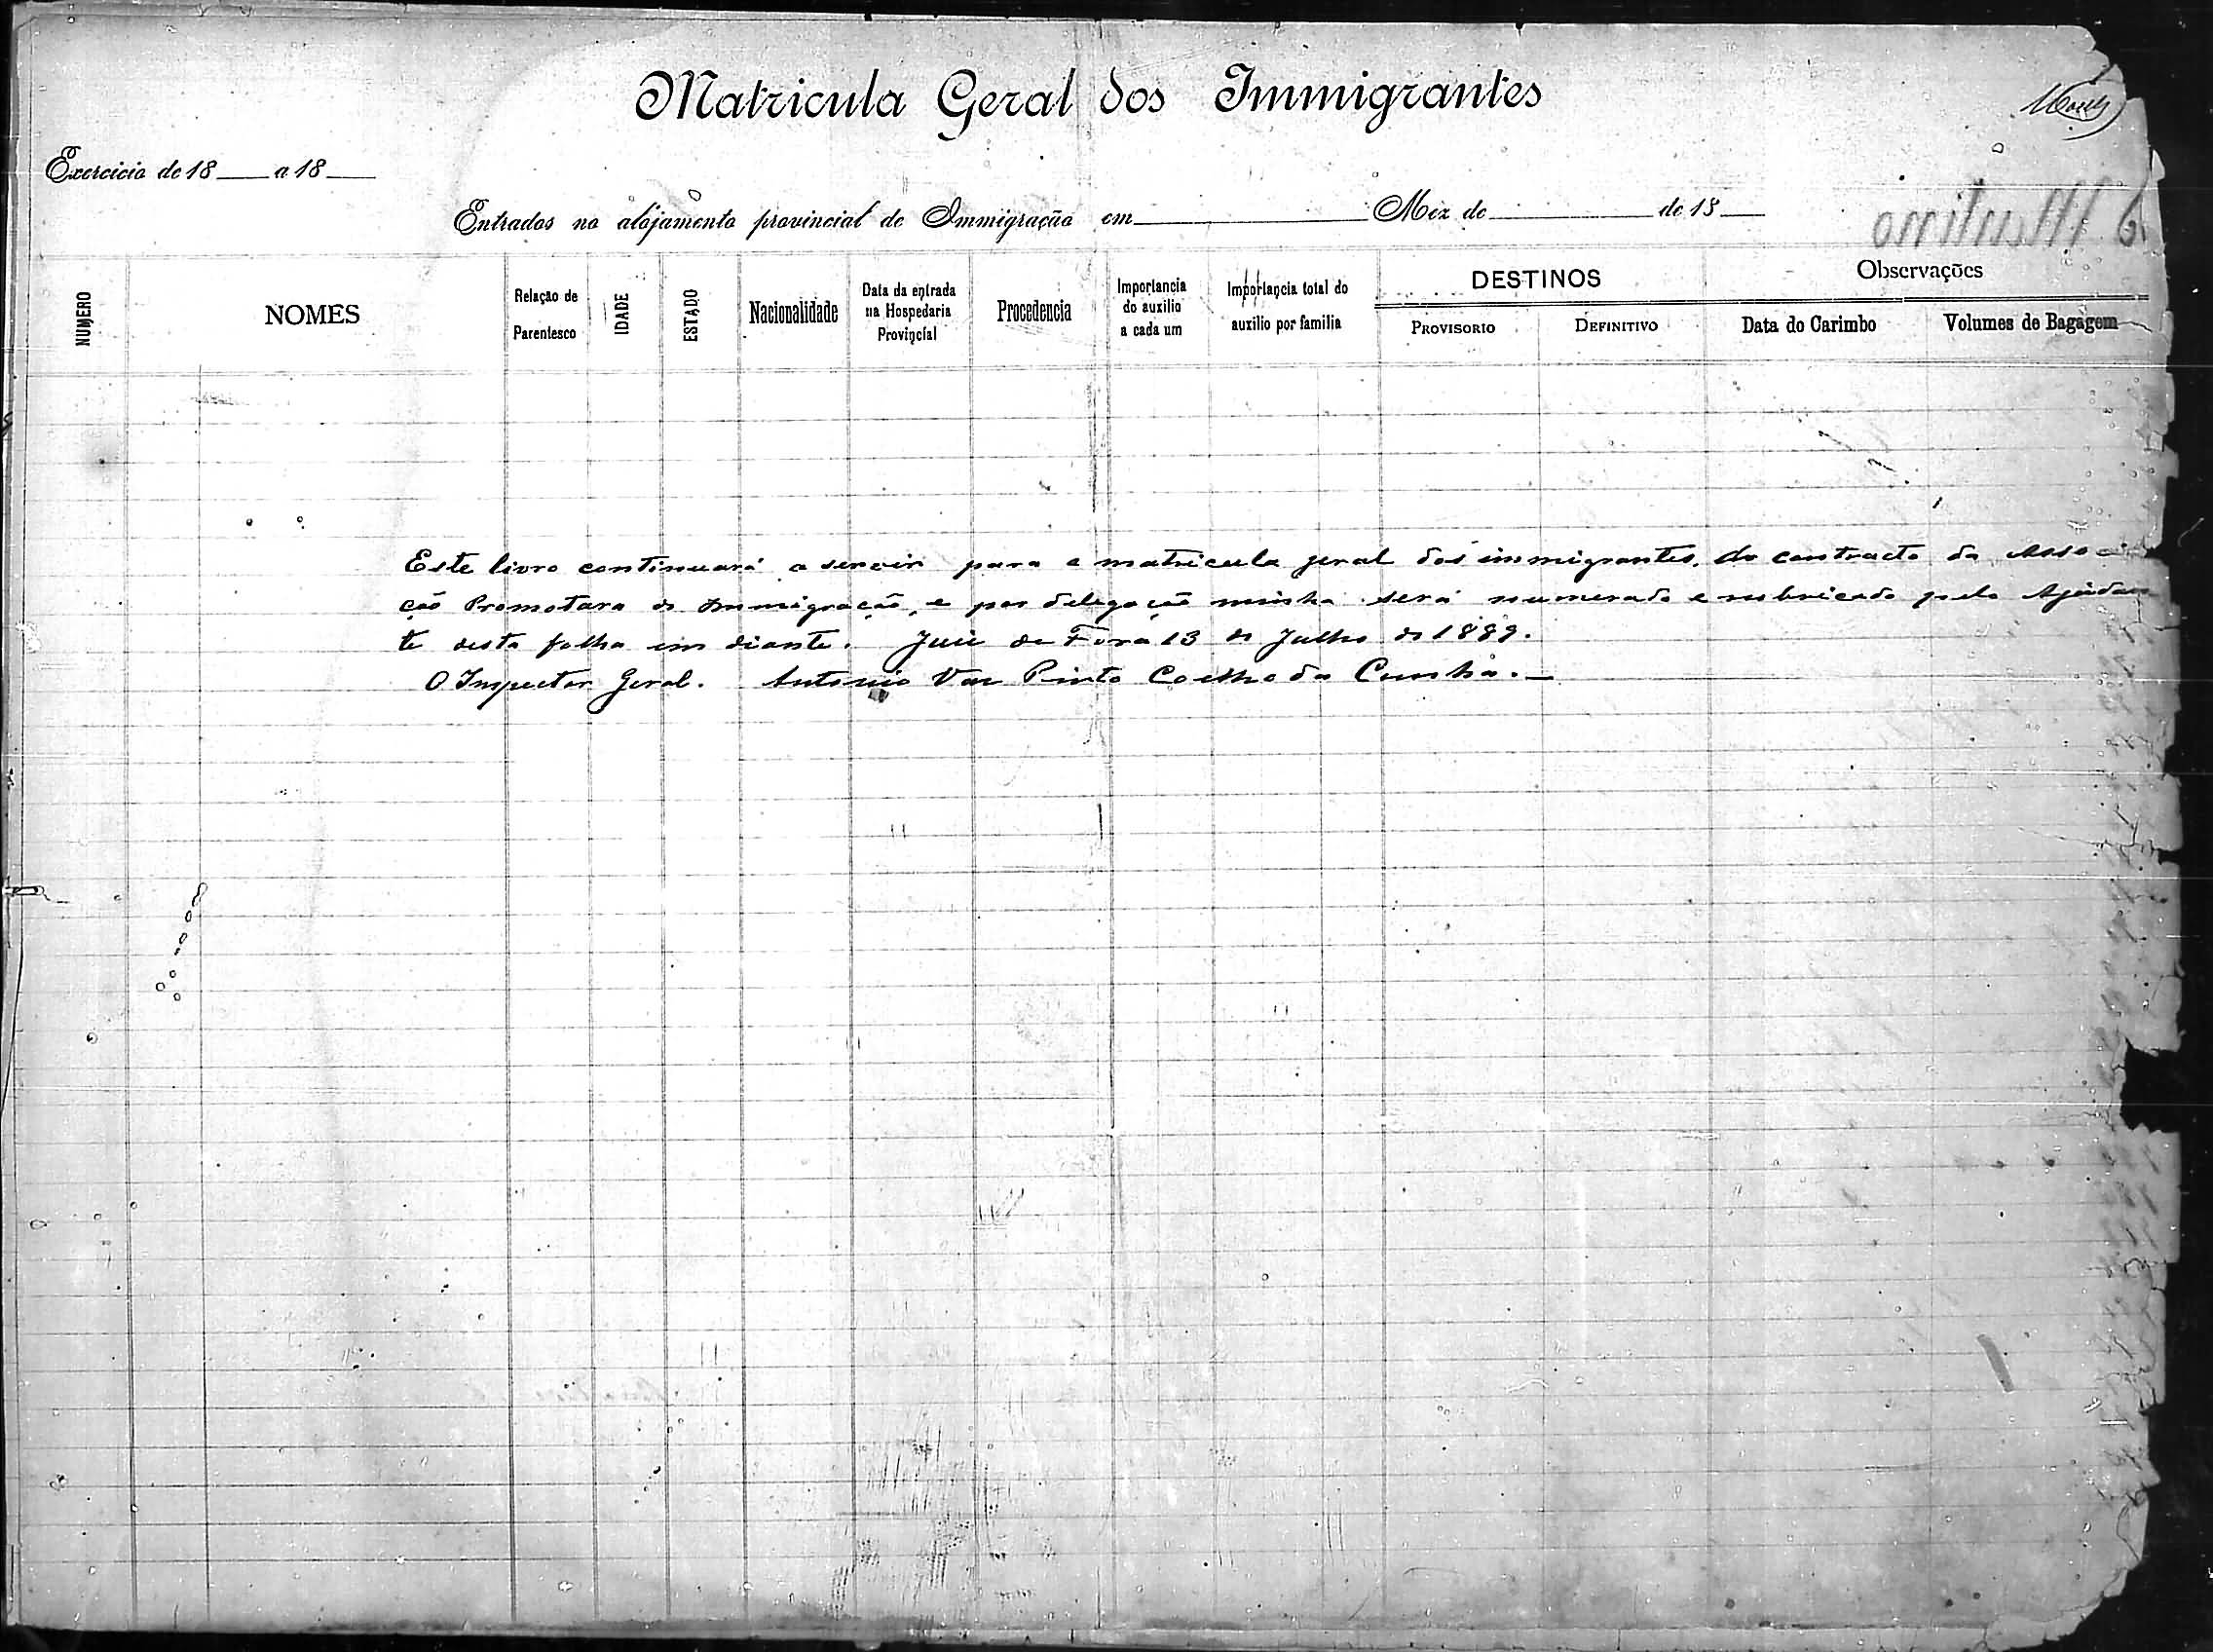 Matricula Geral dos Immigrantes
Exercicio de 18 a 18
Entrados no alojamento provincial de Immigração em Mez de de 18
NUMERO
NOMES
Relação de
Parentesco
IDADE
ESTADO
Nacionalidade
Data da entrada
na Hospedaria
Provincial
Procedencia
Importancia
do auxilio
a cada um
Importancia total do
auxilio por familia
DESTINOS
PROVISORIO
DEFINITIVO
Observações
Data do Carimbo
Volumes de Bagagem
Este livro continuará a servir para a matricula geral dos immigrantes, do contracto da Associa
ção Promotora de Immigração, e por delegação minha será numerado e rubricado pelo Ajudan
te desta folha em diante. Juiz de Fóra 13 de Julho de 1889.
O Inspector Geral. Antonio Vaz Pinto Coelho da Cunha.